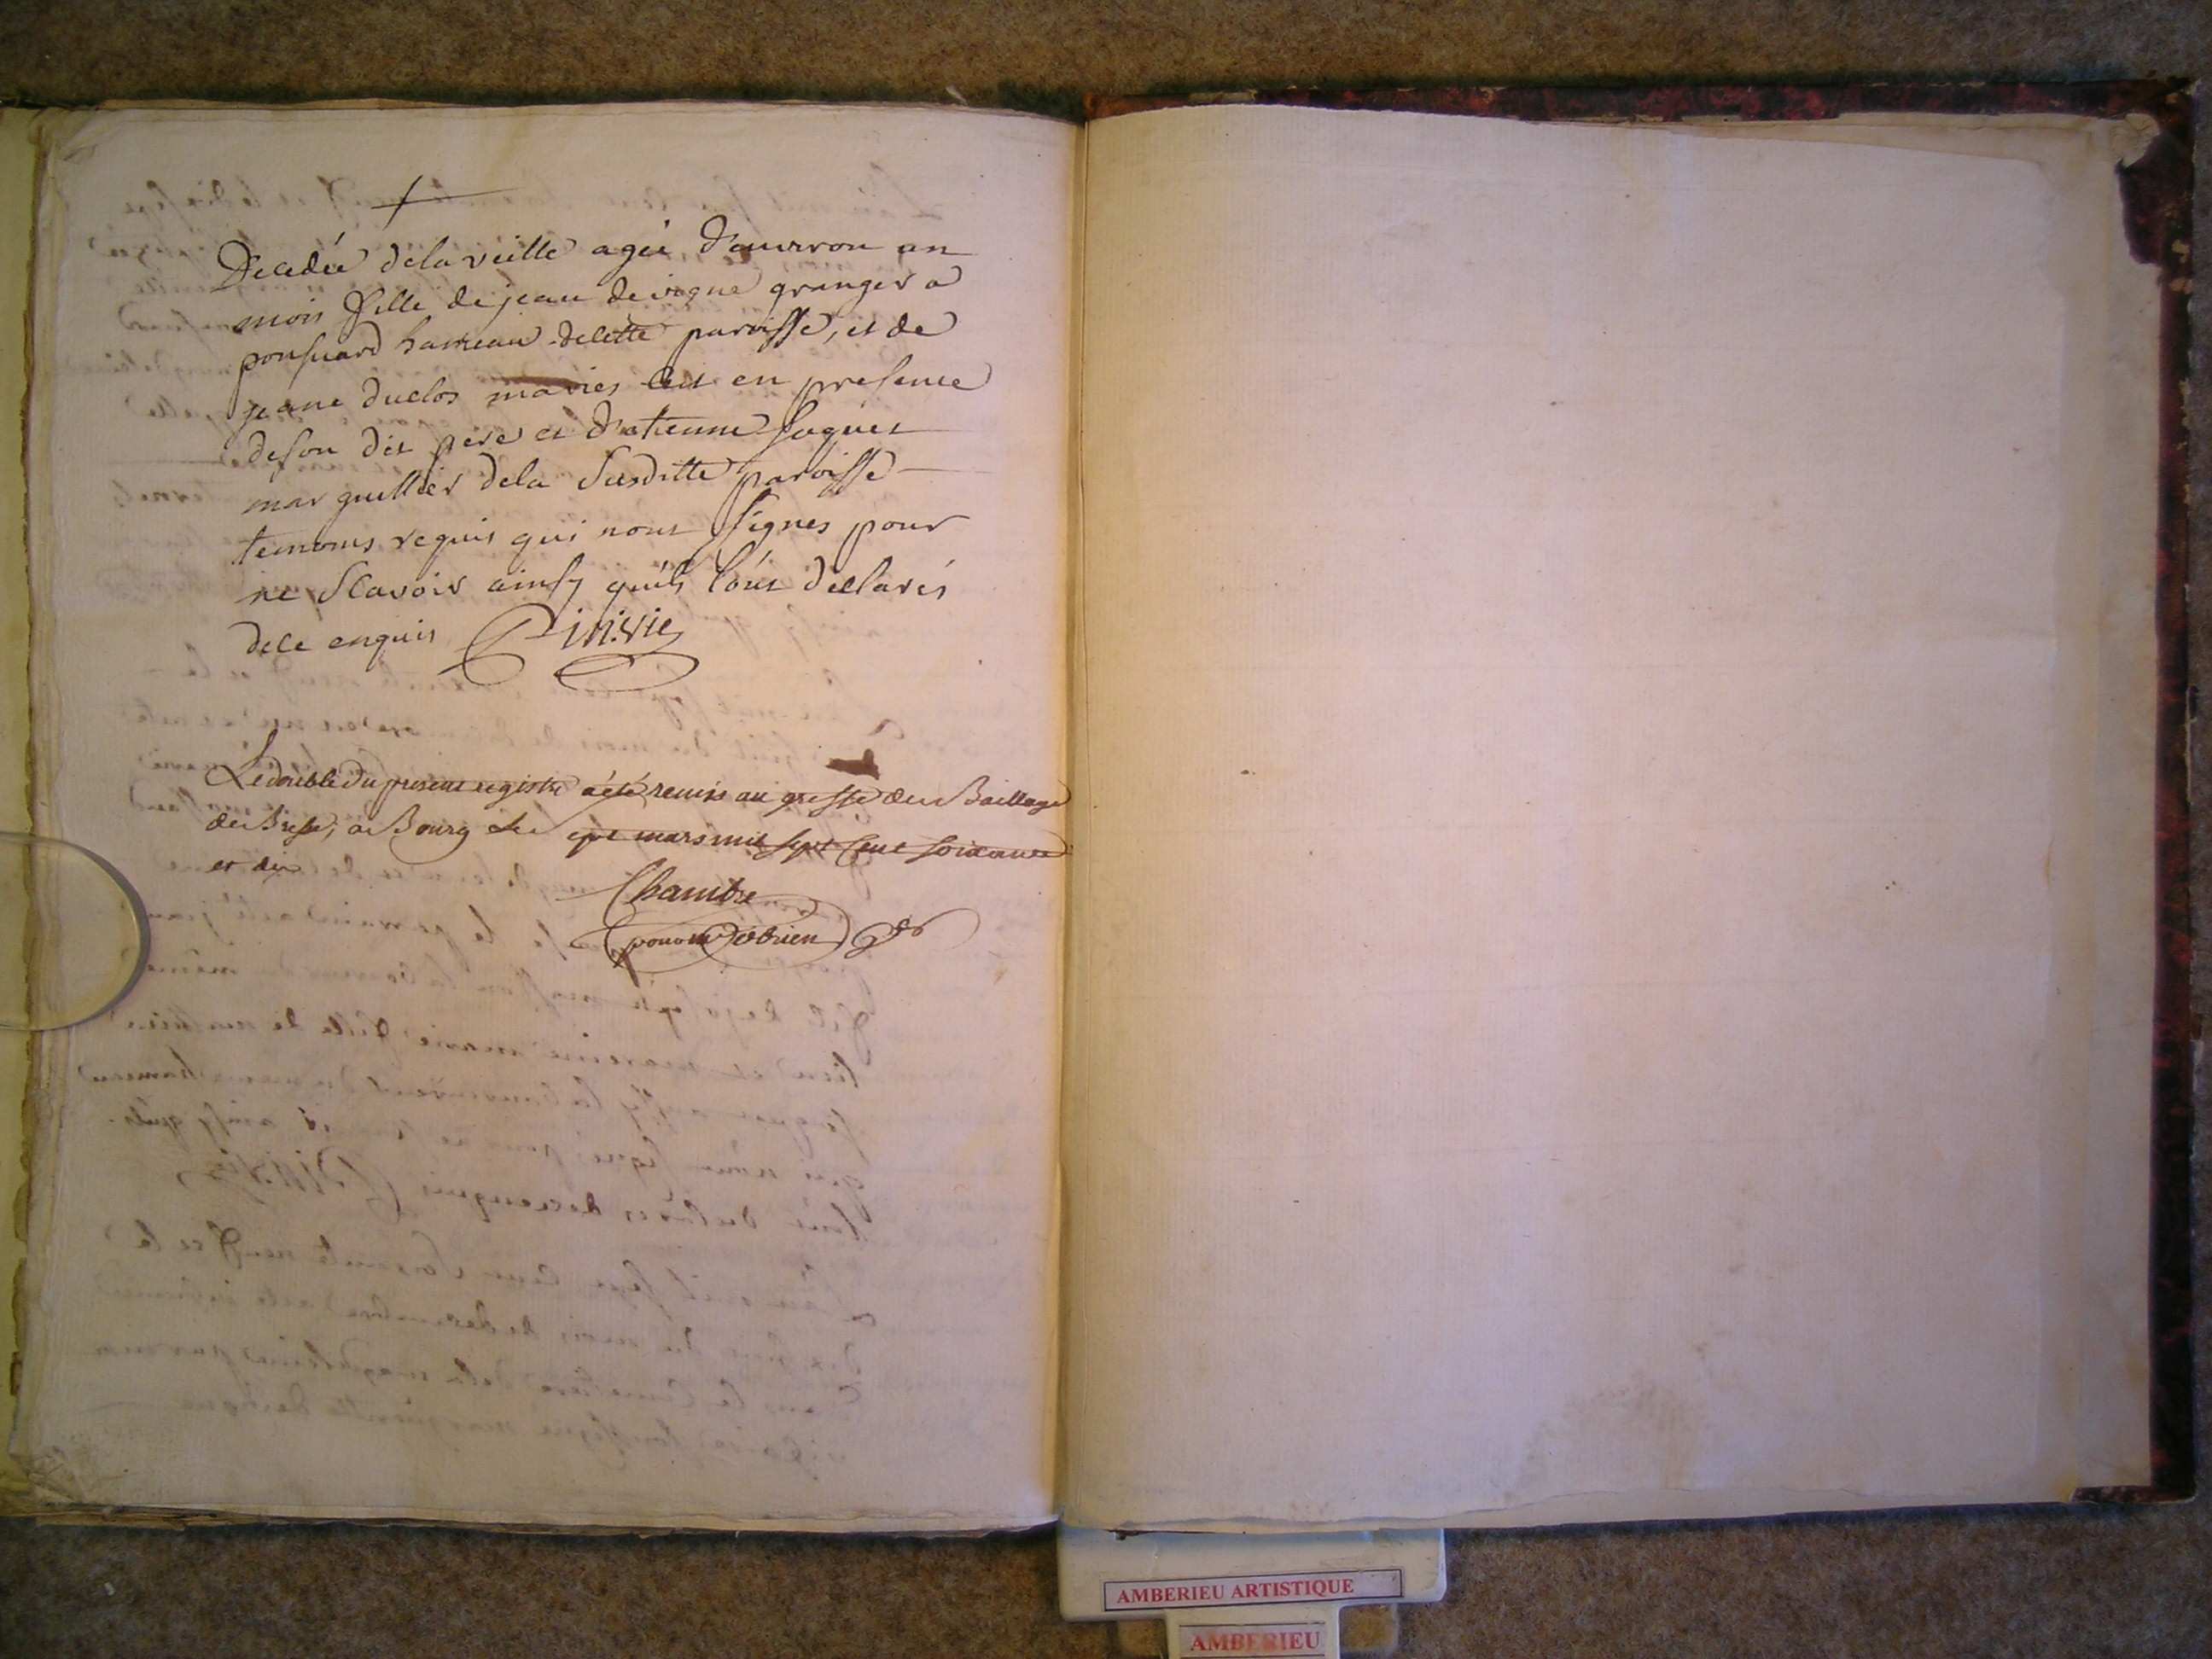 Decedée dela veille agée d'anviron un
mois fille de jean devigne granger a
ponsuard hameau decette paroisse, et de
jeane duclos mariés cet en presence
deson dit pere et d'etienne saguet
marguillier dela susditte paroisse
temoins requis qui nont signes pour
ne scavoir ainsy quils l'ont declarés
dece enquis
Le double du present registre a été remis au greffe du Baillage
de Bresse, a Bourg le sept mars mil sept cent soixante
et dix
Chambre
AMBERIEU ARTISTIQUE
AMBERIEU